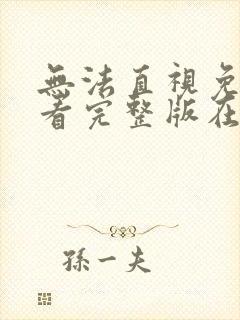 無法直視免
看完整版在
孫一夫